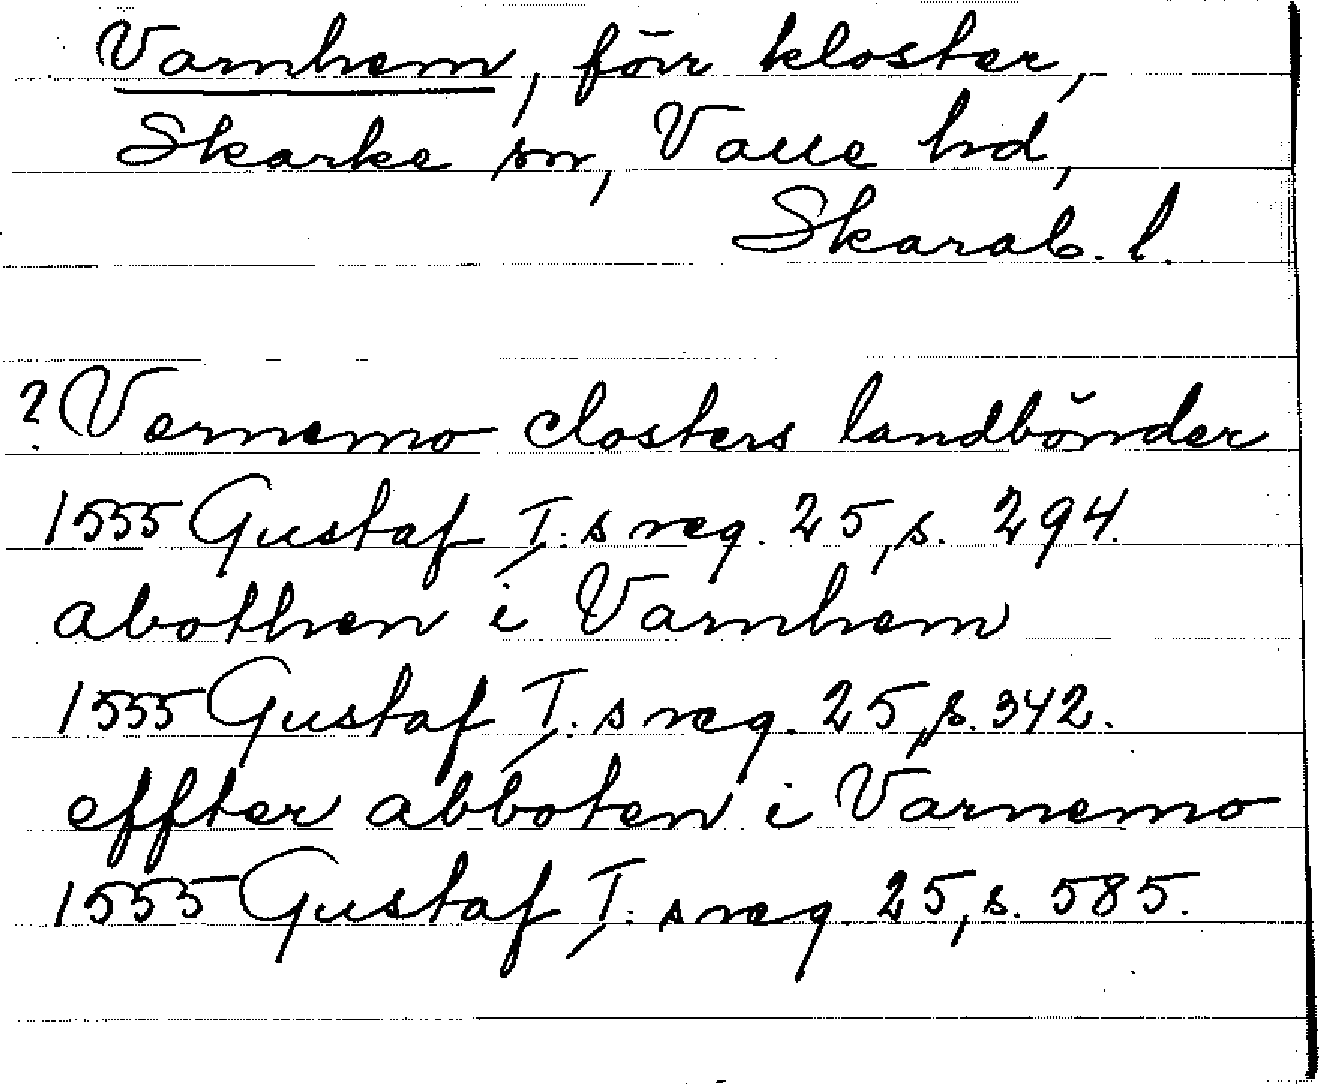 Varnhem, förr kloster,
Skarke sn, Valle hd,
Skarab. l.
? Vernemo closters landbönder
1555 Gustaf I:s reg. 25, s. 294.
abothen i Varnhem
1555 Gustaf I:s reg. 25, s. 342.
effter abboten i Varnemo
1555 Gustaf I:s reg. 25, s. 585.